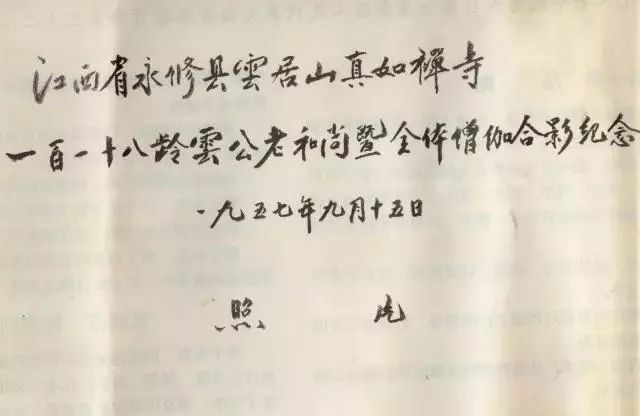 江西省永修县雲居山真如禪寺
一百一十八龄雲公老和尚暨全体僧伽合影纪念
一九五七年九月十五日
照片